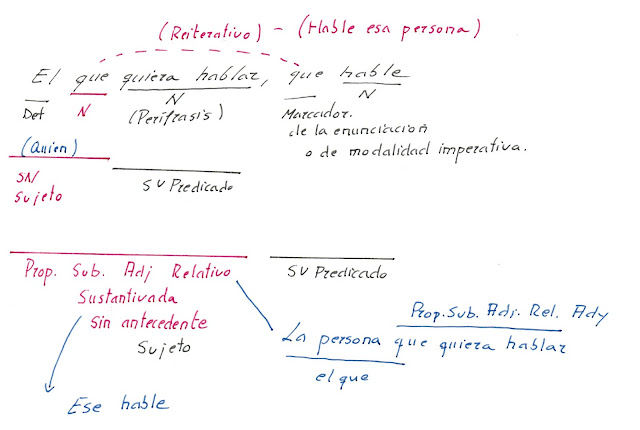 (Reiterativo) - (Hable esa persona)
El que quiera hablar, que hable
Det N N N
(Perífrasis) Marcador.
de la enunciación
o de modalidad imperativa.
(Quien)
SN SV Predicado
Sujeto
Prop. Sub. Adj Relativo SV Predicado
Sustantivada
sin antecedente
Sujeto
Prop. Sub. Adj. Rel. Ady
La persona que quiera hablar
el que
Ese hable